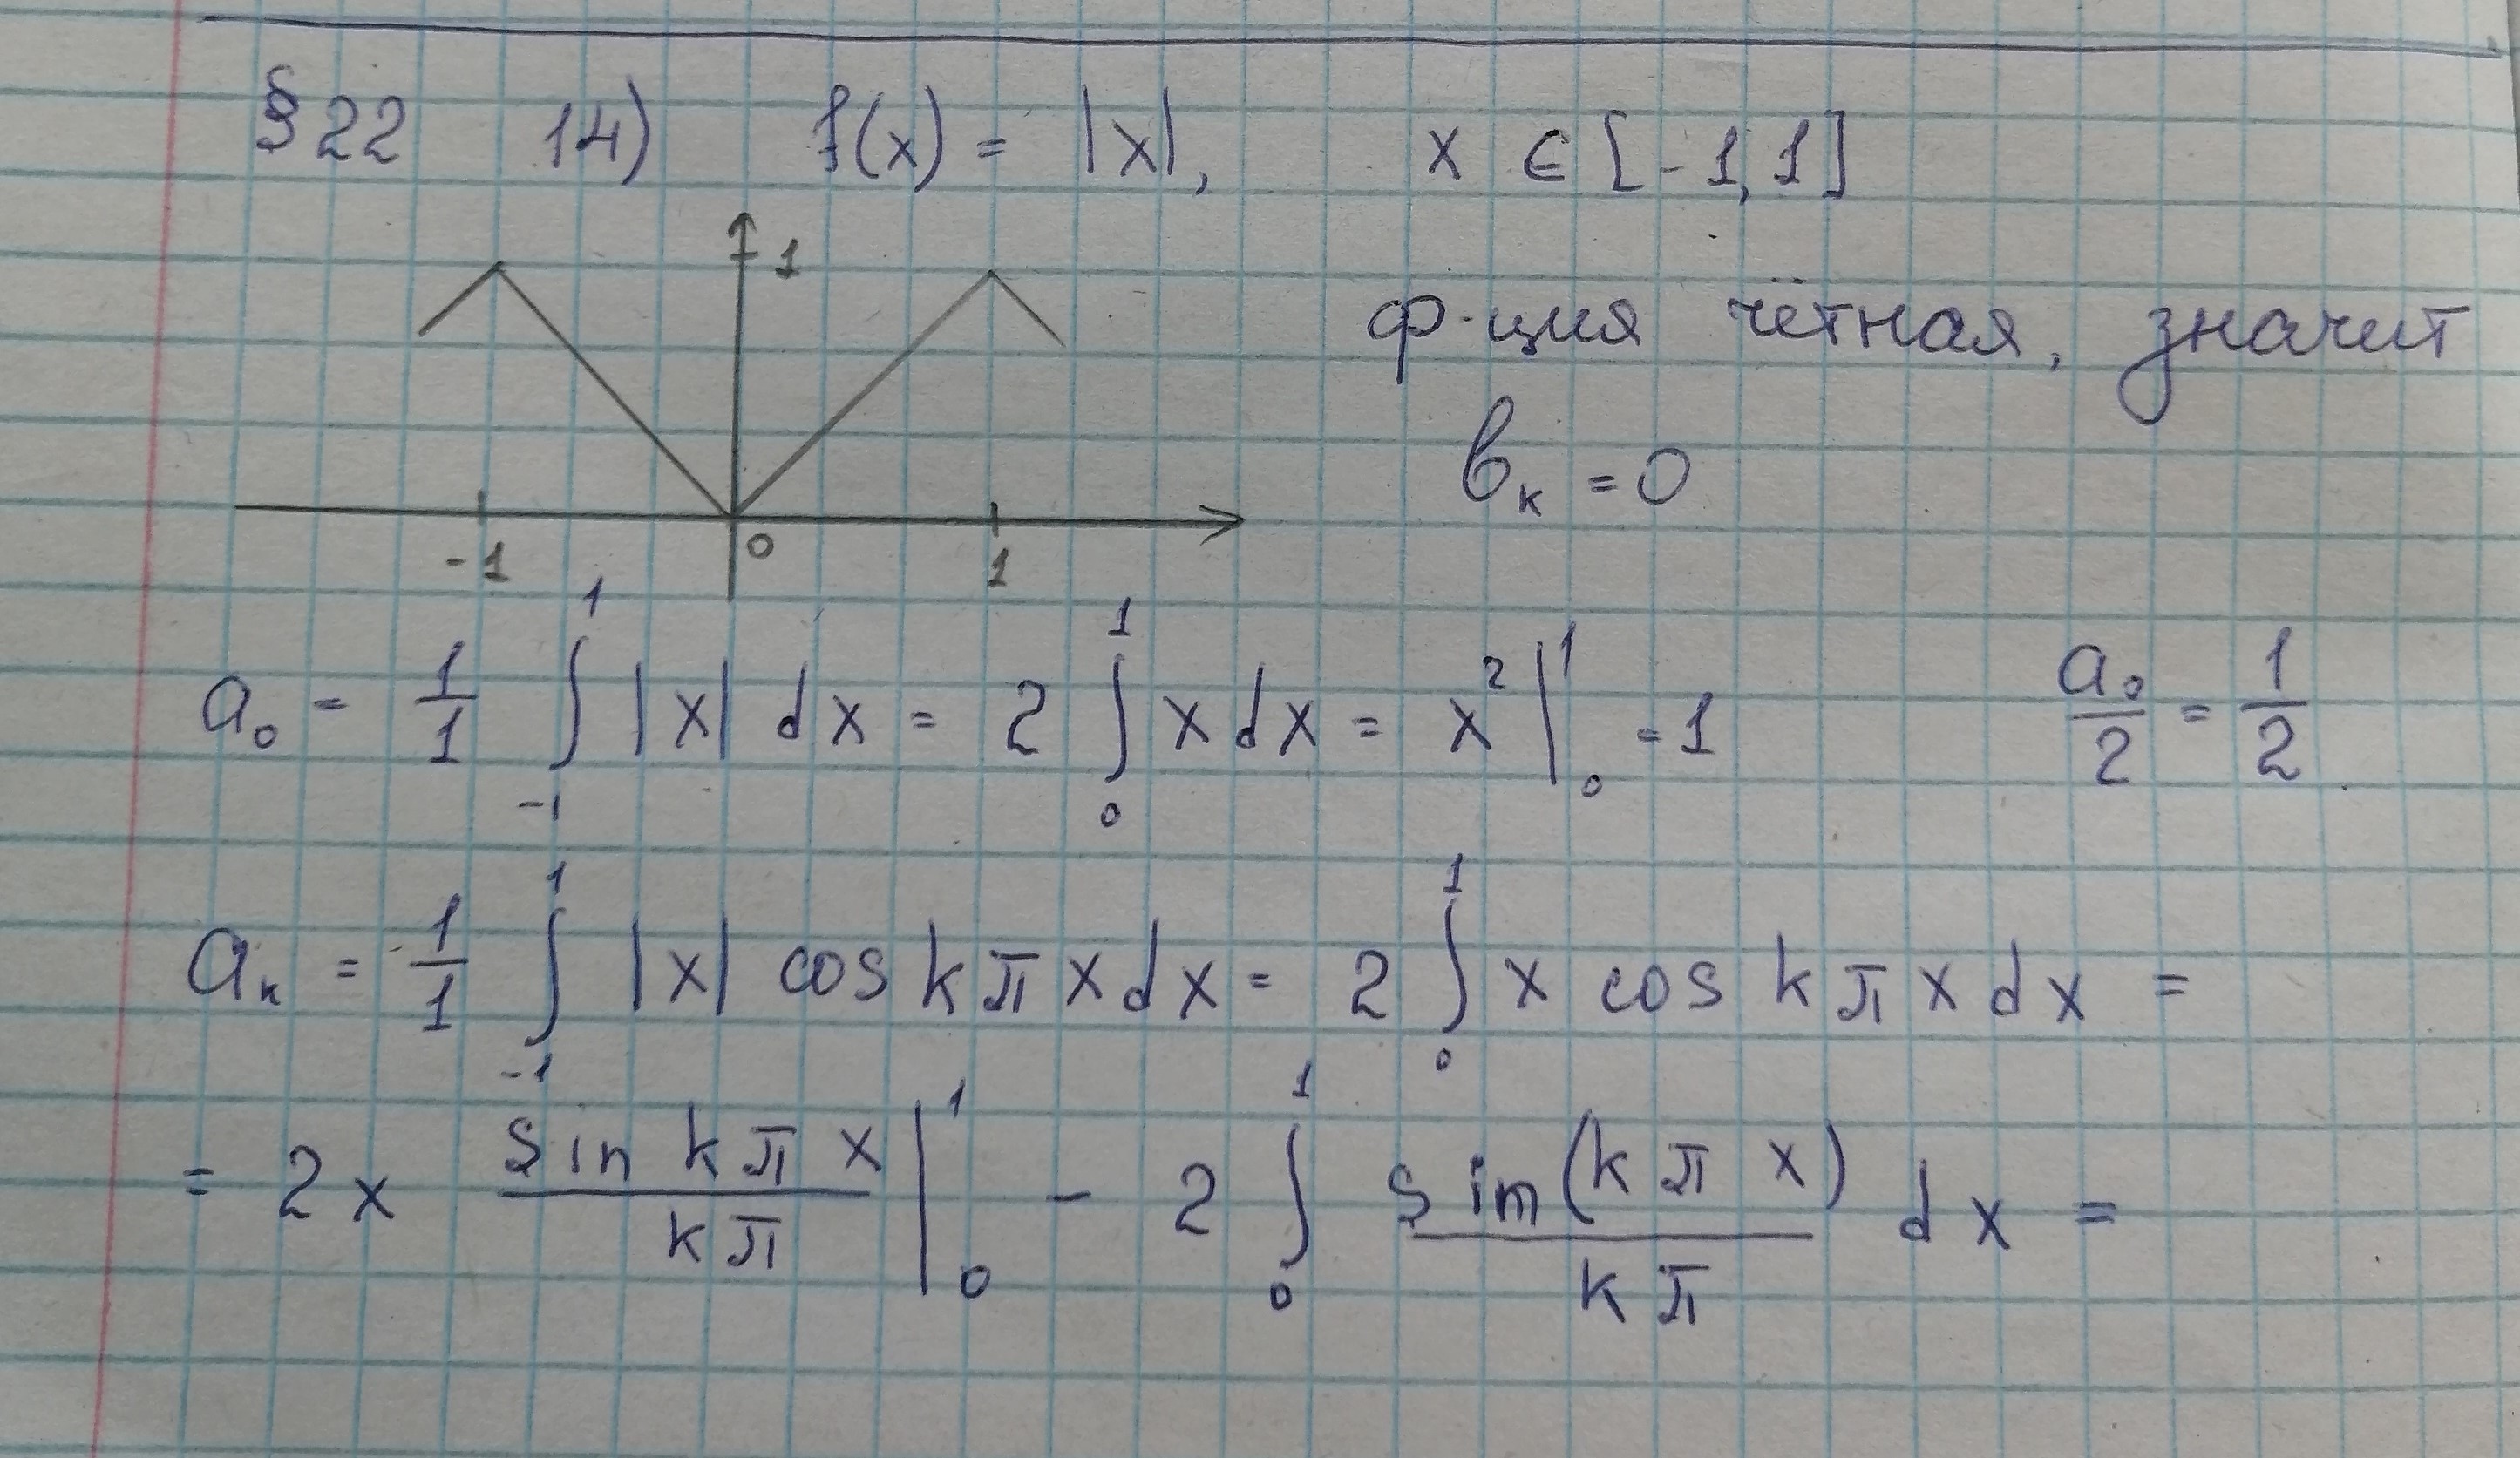 § 22 14) f(x) = |x|, x ∈ [-1, 1]
1
ф-ция чётная, значит
b_k = 0
-1 0 1
a_0 = \frac{1}{1} \int_{-1}^{1} |x| dx = 2 \int_{0}^{1} x dx = x^2 |_{0}^{1} = 1 \frac{a_0}{2} = \frac{1}{2}
a_k = \frac{1}{1} \int_{-1}^{1} |x| cos kπx dx = 2 \int_{0}^{1} x cos kπx dx =
= 2x \frac{sin kπx}{kπ} |_{0}^{1} - 2 \int_{0}^{1} \frac{sin(kπx)}{kπ} dx =